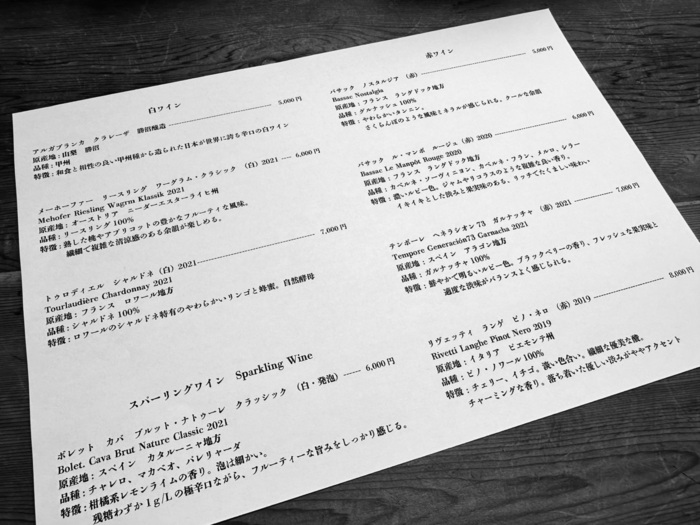 白ワイン
アルガブランカ　クラレーザ　勝沼醸造 ---------- 5,000円
原産地：山梨　勝沼
品種：甲州
特徴：和食と相性の良い甲州種から造られた日本が世界に誇る辛口の白ワイン
メーホーファー　リースリング　ワーグラム・クラシック（白）2021 ---- 6,000円
Mehofer Riesling Wagrm Klassik 2021
原産地：オーストリア　ニーダーエスターライヒ州
品種：リースリング 100%
特徴：熟した桃やアプリコットの豊かなフルーティな風味。
繊細で複雑な清涼感のある余韻が楽しめる。
トゥロディエル　シャルドネ（白）2021 ---------- 7,000円
Tourlaudière Chardonnay 2021
原産地：フランス　ロワール地方
品種：シャルドネ 100%
特徴：ロワールのシャルドネ特有のやわらかいリンゴと蜂蜜。自然酵母
スパーリングワイン　Sparkling Wine
ボレット　カバ　ブルット・ナトゥーレ　クラッシック　（白・発泡）------ 6,000円
Bolet. Cava Brut Nature Classic 2021
原産地：スペイン　カタルーニャ地方
品種：チャレロ、マカベオ、パレリャーダ
特徴：柑橘系レモンライムの香り。泡は細かい。
残糖わずか1g/Lの極辛口ながら、フルーティーな旨みをしっかり感じる。
赤ワイン
バサック　ノスタルジア　（赤）---------- 5,000円
Bassac Nostalgia
原産地：フランス　ラングドック地方
品種：グルナッシュ 100%
特徴：やわらかいタンニン。
さくらんぼのような風味とミネラルが感じられる。クールな余韻
バサック　ル・マンポ　ルージュ（赤）2020 ---------- 6,000円
Bassac Le Manpôt Rouge 2020
原産地：フランス　ラングドック地方
品種：カベルネ・ソーヴィニヨン、カベルネ・フラン、メルロ、シラー
特徴：濃いルビー色。ジャムやリコラスのような複雑な良い香り。
イキイキとした渋みと果実味のある。リッチでたくましい味わい
テンポーレ　ヘネラシオン73　ガルナッチャ　（赤）2021 ---------- 7,000円
Tempore Generación73 Garnacha 2021
原産地：スペイン　アラゴン地方
品種：ガルナッチャ 100%
特徴：鮮やかで明るいルビー色。ブラックベリーの香り。フレッシュな果実味と
適度な渋味がバランスよく感じられる。
リヴェッティ　ランゲ　ピノ・ネロ　（赤）2019 ---------- 8,000円
Rivetti Langhe Pinot Nero 2019
原産地：イタリア　ピエモンテ州
品種：ピノ・ノワール 100%
特徴：チェリー、イチゴ。淡い色合い。繊細な優美な酸。
チャーミングな香り。落ち着いた優しい渋みがややアクセント